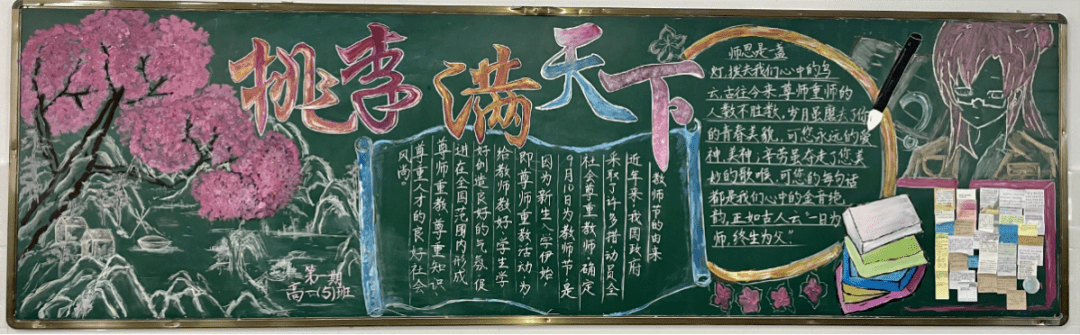 桃李满天下
教师节的由来
近年来,我国政府
采取了许多措动员全
社会尊重教师。确定
9月10日为教师节是
因为新生入学伊始,
即尊师重教活动为
给教师教好、学生学
好创造良好的气氛,促
进在全国范围内形成
尊师重教、尊重知识、
尊重人才的良好社会
风尚。
师恩是一盏
灯,拨去我们心中的乌
云,古往今来,尊师重师的
人数不胜数,岁月虽磨去了你
的青春美貌,可您永远的爱
神,美神,辛劳虽夺走了您美
妙的歌喉,可您的每句话
都是我们心中的金音绝
韵,正如古人云“一日为
师,终生为父”
第一期
高一(5)班